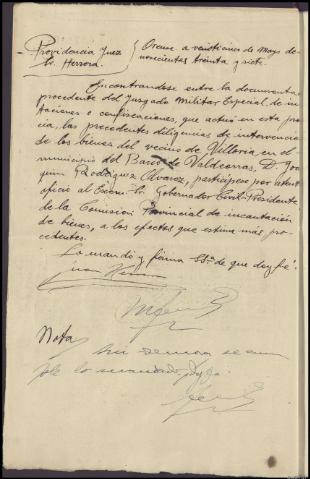 Providencia Juez
Sr. Herrera.
Orense a veinticinco de Mayo de
novecientos treinta y siete.
Encontrandose entre la documentación
procedente del Juzgado Militar Especial de in
cautaciones o confiscaciones, que actuó en esta pro
cia, las precedentes diligencias de intervención
de los bienes del vecino de Villoria, en el
municipio del Barco de Valdeorras, D. Joa
quin Rodriguez Alvarez, participese por atento
oficio al Excmo. Sr. Gobernador Civil-Presidente
de la Comisión Provincial de incautación
de bienes, a los efectos que estime más pro
cedentes.
Lo mandó y firma S.Sª de que doy fé.
Nota
sin demora se cum
ple lo mandado, doy fe.